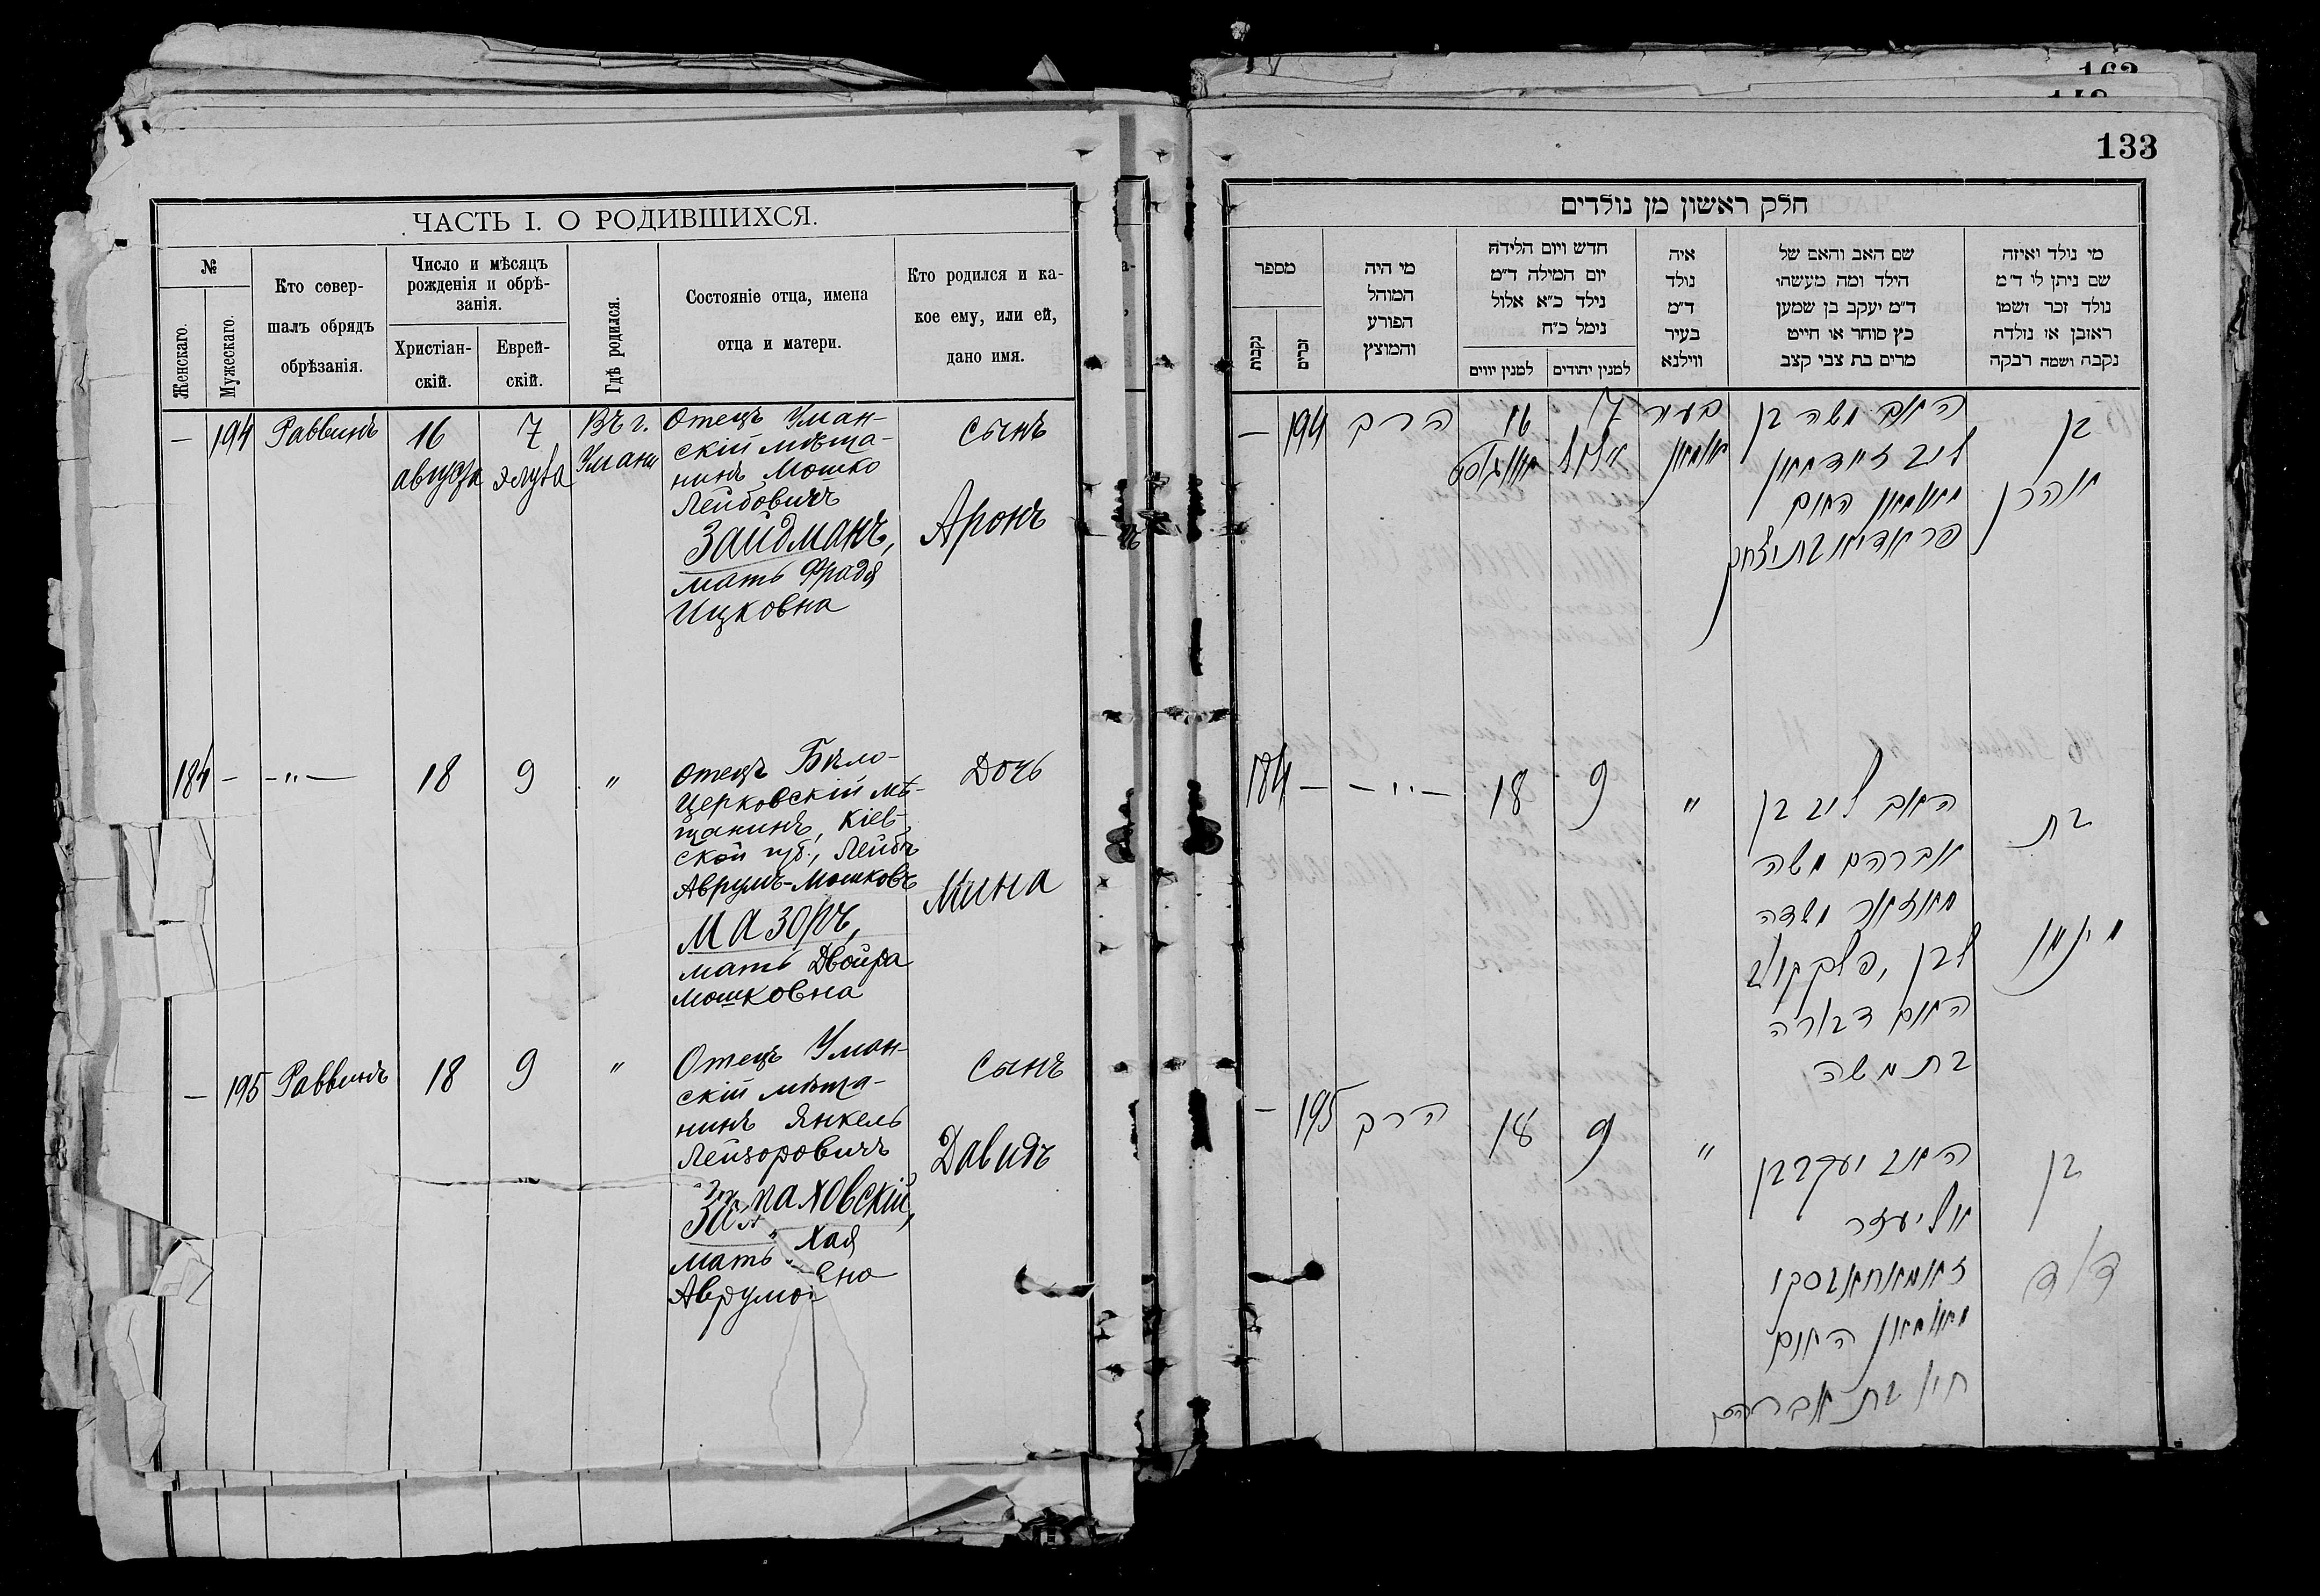 162
133
ЧАСТЬ I. О РОДИВШИХСЯ.
№
Женскаго.
Мужескаго.
Кто совер-
шалъ обрядъ
обрѣзанія.
Число и мѣсяцъ
рожденія и обрѣ-
занія.
Христіан-
скій.
Еврей-
скій.
Гдѣ родился.
Состояніе отца, имена
отца и матери.
Кто родился и ка-
кое ему, или ей,
дано имя.
—
194
Раввинъ
16
августа
7
элула
Въ г.
Умани
Отецъ Уман-
скій мѣща-
нинъ Мошко
Лейбовичъ
Зайдманъ,
мать Фрадя
Ицковна
Сынъ
Аронъ
184
—
—"—
18
9
"
Отецъ Бѣло-
Церковскій мѣ-
щанинъ, Кіев-
ской губ., Лейбъ
Аврумъ-Мошковъ
Мазоръ,
мать Двойра
Мошковна
Дочь
Мина
—
195
Раввинъ
18
9
"
Отецъ Уман-
скій мѣща-
нинъ Янкель
Лейзоровичъ
мать Хая
Сынъ
Давидъ
חלק ראשון מן נולדים
מספר
נקבות
זכרים
מי היה
המוהל
הפורע
והמוצץ
חדש ויום הלידה
יום המילה ד״מ
נילד כ״א אלול
נימל כ״ח
למנין יווים
למנין יהודים
איה
נולד
ד״מ
בעיר
ווילנא
שם האב והאם של
הילד ומה מעשהו
ד״מ יעקב בן שמען
כץ סוחר או חייט
מרים בת צבי קצב
מי נולד ואיזה
שם ניתן לו ד״מ
נולד זכר ושמו
ראובן או נולדה
נקבה ושמה רבקה
—
194
הרב
16
אווגוסט
7
אלול
בעיר
אומאן
האב משה בן
ליב זיידמאן
מאומאן האם
פראדיא בת יצחק
בן
אהרן
184
—
—"—
18
9
"
האב ליב בן
אברהם משה
מאזאר משדה
לבן, פלך קיוב
האם דבורה
בת משה
בת
—
195
הרב
18
9
"
האב יעקב בן
אליעזר
מאומאן האם
חיא בת אברהם
בן
דוד